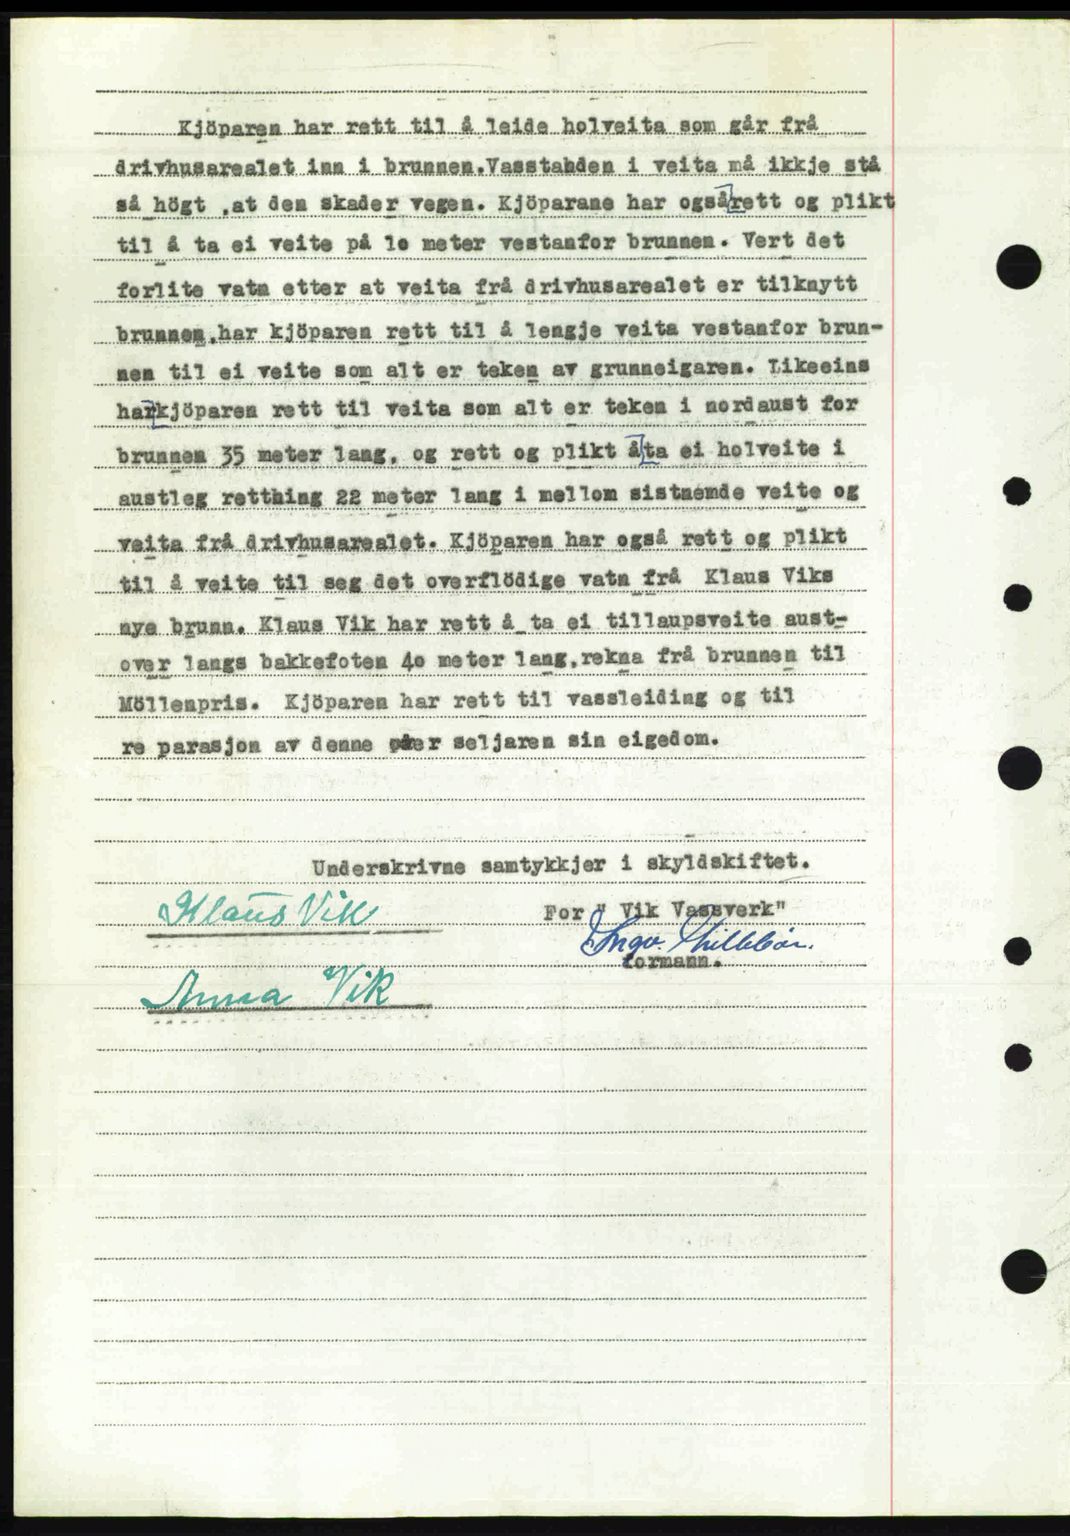 Kjöparen har rett til å leide holveita som går frå
drivhusarealet inn i brunnen.Vasstanden i veita må ikkje stå
så högt ,at den skader vegen. Kjöparane har også rett og plikt
til å ta ei veite på 1o meter vestanfor brunnen. Vert det
forlite vatn etter at veita frå drivhusarealet er tilknytt
brunnen,har kjöparen rett til å lengje veita vestanfor brun-
nen til ei veite som alt er teken av grunneigaren. Likeeins
har kjöparen rett til veita som alt er teken i nordaust for
brunnen 35 meter lang, og rett og plikt å ta ei holveite i
austleg retning 22 meter lang i mellom sistnemde veite og
veita frå drivhusarealet. Kjöparen har også rett og plikt
til å veite til seg det overflödige vatn frå Klaus Viks
nye brunn. Klaus Vik har rett å ta ei tillaupsveite aust-
over langs bakkefoten 4o meter lang,rekna frå brunnen til
Möllenpris. Kjöparen har rett til vassleiding og til
re parasjon av denne over seljaren sin eigedom.
Underskrivne samtykkjer i skyldskiftet.
Klaus Vik
For " Vik Vassverk"
Ingv.
formann.
Anna Vik